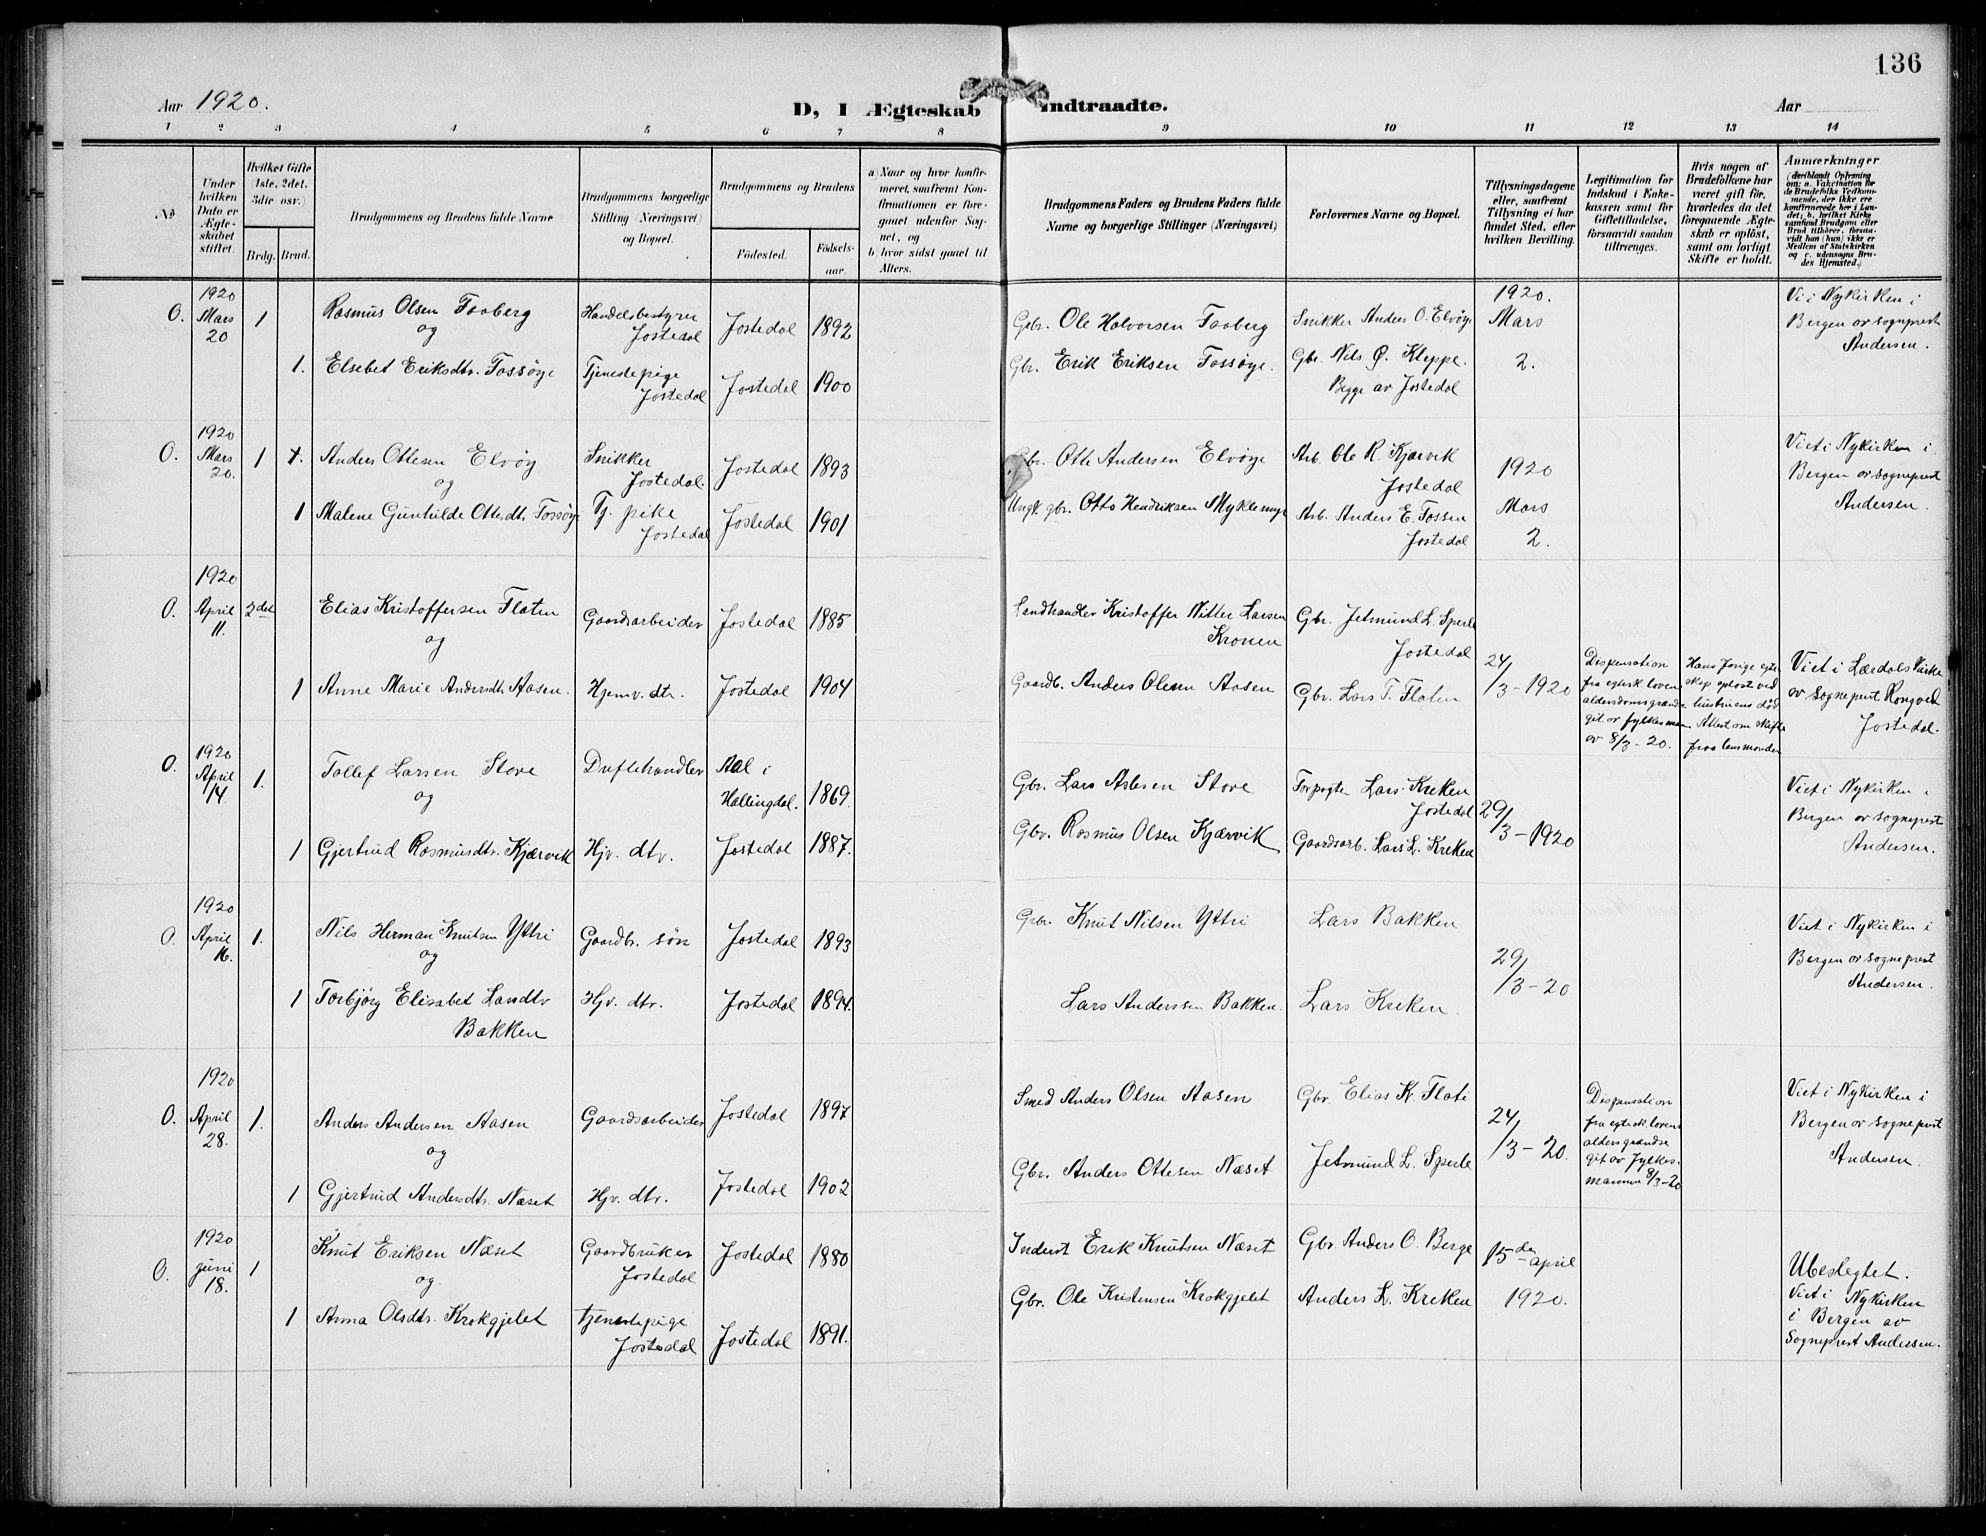 136
Aar 1920.
D, I Ægteskab Indtraadte.
Aar
1 2 3 4 5 6 7 8 9 10 11 12 13 14
No
Under hvilken Dato er Ægteskabet stiftet.
Hvilket Gifte 1ste, 2det, 3die osv.)
Brdg. Brud.
Brudgommens og Brudens fulde Navne
Brudgommens borgerlige Stilling (Næringsvei) og Bopæl.
Brudgommens og Brudens
Fødested. Fødselsaar.
a) Naar og hvor konfirmeret, saafremt Konfirmationen er foregaaet udenfor Sognet, og
b hvor sidst gaaet til Alters.
Brudgommens Faders og Brudens Faders fulde Navne og borgerlige Stillinger (Næringsvei)
Forlovernes Navne og Bopæl.
Tillysningsdagene eller, saafremt Tillysning ei har fundet Sted, efter hvilken Bevilling.
Legitimation for Indskud i Enkekassen samt for Giftetilladelse, forsaavidt saadan tiltrænges.
Hvis nogen af Brudefolkene har været gift før, hvorledes da det foregaaende Ægteskab er opløst, samt om lovligt Skifte er holdt.
Anmærkninger (deriblandt Oplysning om: a. Vakcination for de Brudefolks Vedkommende, der ikke ere konfirmerede her i Landet; b. hvilket Kirkesamfund Brudgom eller Brud tilhører, forsaavidt han (hun) ikke er Medlem af Statskirken og c. udensogns Brudes Hjemsted.)
O. 1920 Mars 20 1 Rasmus Olsen Faaberg Handelsbestyrer Jostedal Jostedal 1892 Gbr. Ole Halvorsen Faaberg Snikker Anders O. Elvøy 1920. Mars 2. Vi i Nykirken i Bergen av sogneprest Andersen.
og
1. Elsebet Eriksdtr. Fossøye Tjenestepige Jostedal Jostedal 1900 Gbr. Erik Eriksen Fossøye. Gbr. Nils Ø. Kleppe. Begge av Jostedal
O. 1920 Mars 20. 1 1. Anders Ottesen Elvøy Snikker Jostedal. Jostedal 1893 Gbr. Otte Andersen Elvøye Arb. Ole R. Kjærvik Jostedal 1920 Mars 2. Viet i Nykirken i Bergen av sogneprest Andersen.
og
1 Malene Gunhilde Ottesdtr. Fossøy Tj. pike Jostedal Jostedal 1901 Ungk. gbr. Otto Hendriksen Myklemyr Arb. Anders E. Fossen Jostedal
O. 1920 April 11. 2det Elias Kristoffersen Flaten Gaardsarbeider Jostedal 1885 Landhandler Kristoffer Nitter Larsen Kronen Gbr. Jetmund L. Sperle Jostedal 24/3-1920 Dispensation fra egtesk. lovens aldersdomsgrændse git av fylkesman av 8/3-20. Hans forige egteskap opløst ved hustruens død Attest om skifte fraa lensmanden Viet i Lærdals kirke av sogneprest Rongved Jostedal.
og
1 Anne Marie Andersdtr. Aasen. Hjemv. dtr. Jostedal 1904 Gaardb. Anders Olesen Aasen Gbr. Lars T. Flaten
O. 1920 April 14. 1. Tollef Larsen Store Duftehandler Aal i Hallingdal. 1869. Gbr. Lars Aslesen Store Forpagter Lars Kreken Jostedal 29/3-1920 Viet i Nykirken i Bergen av sogneprest Andersen.
og
1 Gjertrud Rasmusdtr. Kjærvik Hjv. dtr. Jostedal 1887. Gbr. Rasmus Olsen Kjærvik Gaardsarb. Lars L. Kreken
O. 1920 April 16. 1. Nils Herman Knutsen Yttri Gaardbr. søn Jostedal 1893 Gbr. Knut Nilsen Yttri Lars Bakken 29/3-20 Viet i Nykirken i Bergen av sogneprest Andersen.
og
1 Torbjørg Elisabet Larsdtr Bakken Hjv. dtr. Jostedal 1894. Lars Anderssen Bakken. Lars Kreken.
O. 1920 April 28. 1. Anders Andersen Aasen Gaardsarbeider Jostedal 1897 Smed Anders Olsen Aasen Gbr. Elias K. Flati 24/3-20. Dispensation fra egtesk. lovens aldersgrændse git av fylkesmannen 8/3-20 Viet i Nykirken i Bergen av sogneprest Andersen.
og
1 Gjertrud Andersdtr. Næset Hjv. dtr. Jostedal 1902 Gbr. Anders Ottesen Næset Jetmund L. Sperle
O. 1920 juni 18. 1 Knut Eriksen Næset Gaardbruker Jostedal Jostedal 1880 Inderst Erik Knutsen Næset Gbr. Anders O. Berge 15de april 1920. Ubeslegtet. Viet i Nykirken i Bergen av Sogneprest Anderssen.
og.
1 Anna Olsdtr. Krokgjelet tjenestepige Jostedal Jostedal 1891. Gbr. Ole Kristensen Krokgjelet Anders L. Kreken